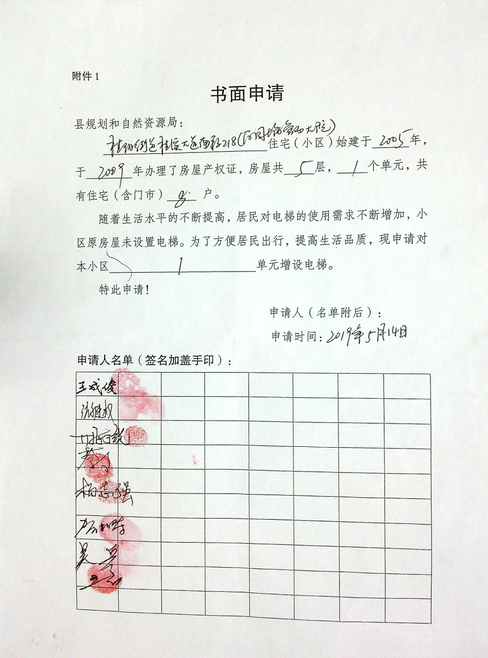 附件1
书面申请
县规划和自然资源局：
住宅（小区）始建于 2005 年，
于 2009 年办理了房屋产权证，房屋共 5 层， 1 个单元，共
有住宅（含门市） 8 户。
随着生活水平的不断提高，居民对电梯的使用需求不断增加，小
区原房屋未设置电梯。为了方便居民出行，提高生活品质，现申请对
本小区 1 单元增设电梯。
特此申请！
申请人（名单附后）：
申请时间：2019年5月14日
申请人名单（签名加盖手印）：
王成俊
杨志强